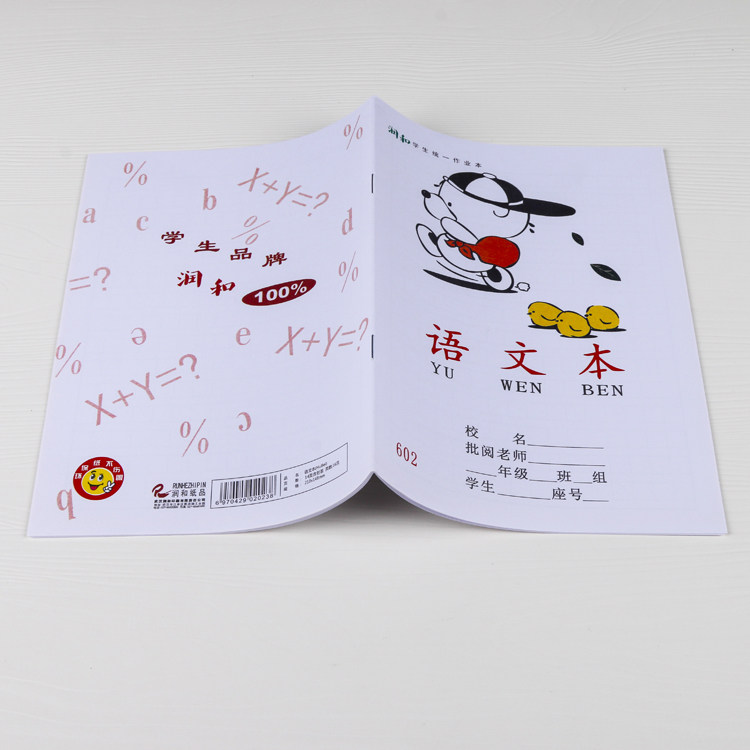 % 
X+Y=?
%
a c b
%
d
学生品牌
润和 100%
=?
%
ə e X+Y=?
%
X+Y=?
%
c
b
RUNHEZHIPIN
润和纸品
6970429020238
润和学生统一作业本
语文本
YU WEN BEN
602
校 名________
批阅老师________
____年级__班__组
学生______座号____